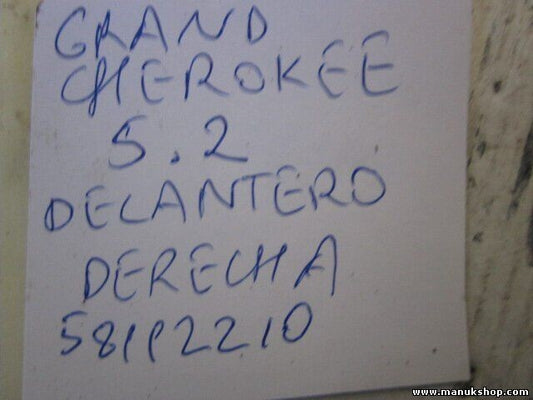 GRAND
CHEROKEE
5.2
DELANTERO
DERECHA
58112210
www.manukshop.com